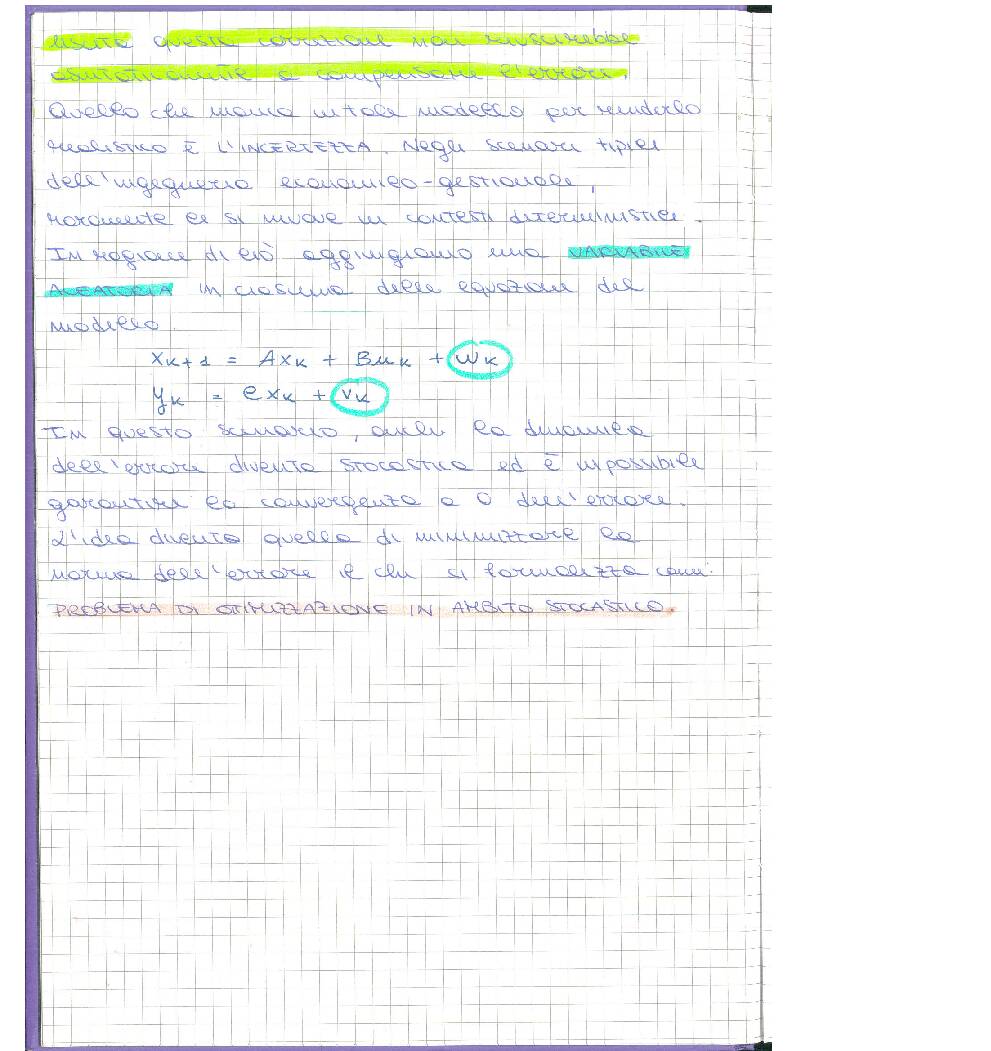 questa correzione non riuscirebbe
asintoticamente a compensare l'errore.
Quello che manca in tale modello per renderlo
realistico è L'INCERTEZZA. Negli scenari tipici
dell'ingegneria economico-gestionale,
raramente ci si muove in contesti deterministici.
In ragione di ciò aggiungiamo una VARIABILE
ALEATORIA in ciascuna delle equazioni del
modello.
xk+1 = Axk + Buk + wk
yk = Cxk + vk
In questo scenario, anche la dinamica
dell'errore diventa stocastica ed è impossibile
garantire la convergenza a 0 dell'errore.
L'idea diventa quella di minimizzare la
norma dell'errore il che si formalizza come:
PROBLEMA DI OTIMIZZAZIONE IN AMBITO STOCASTICO.